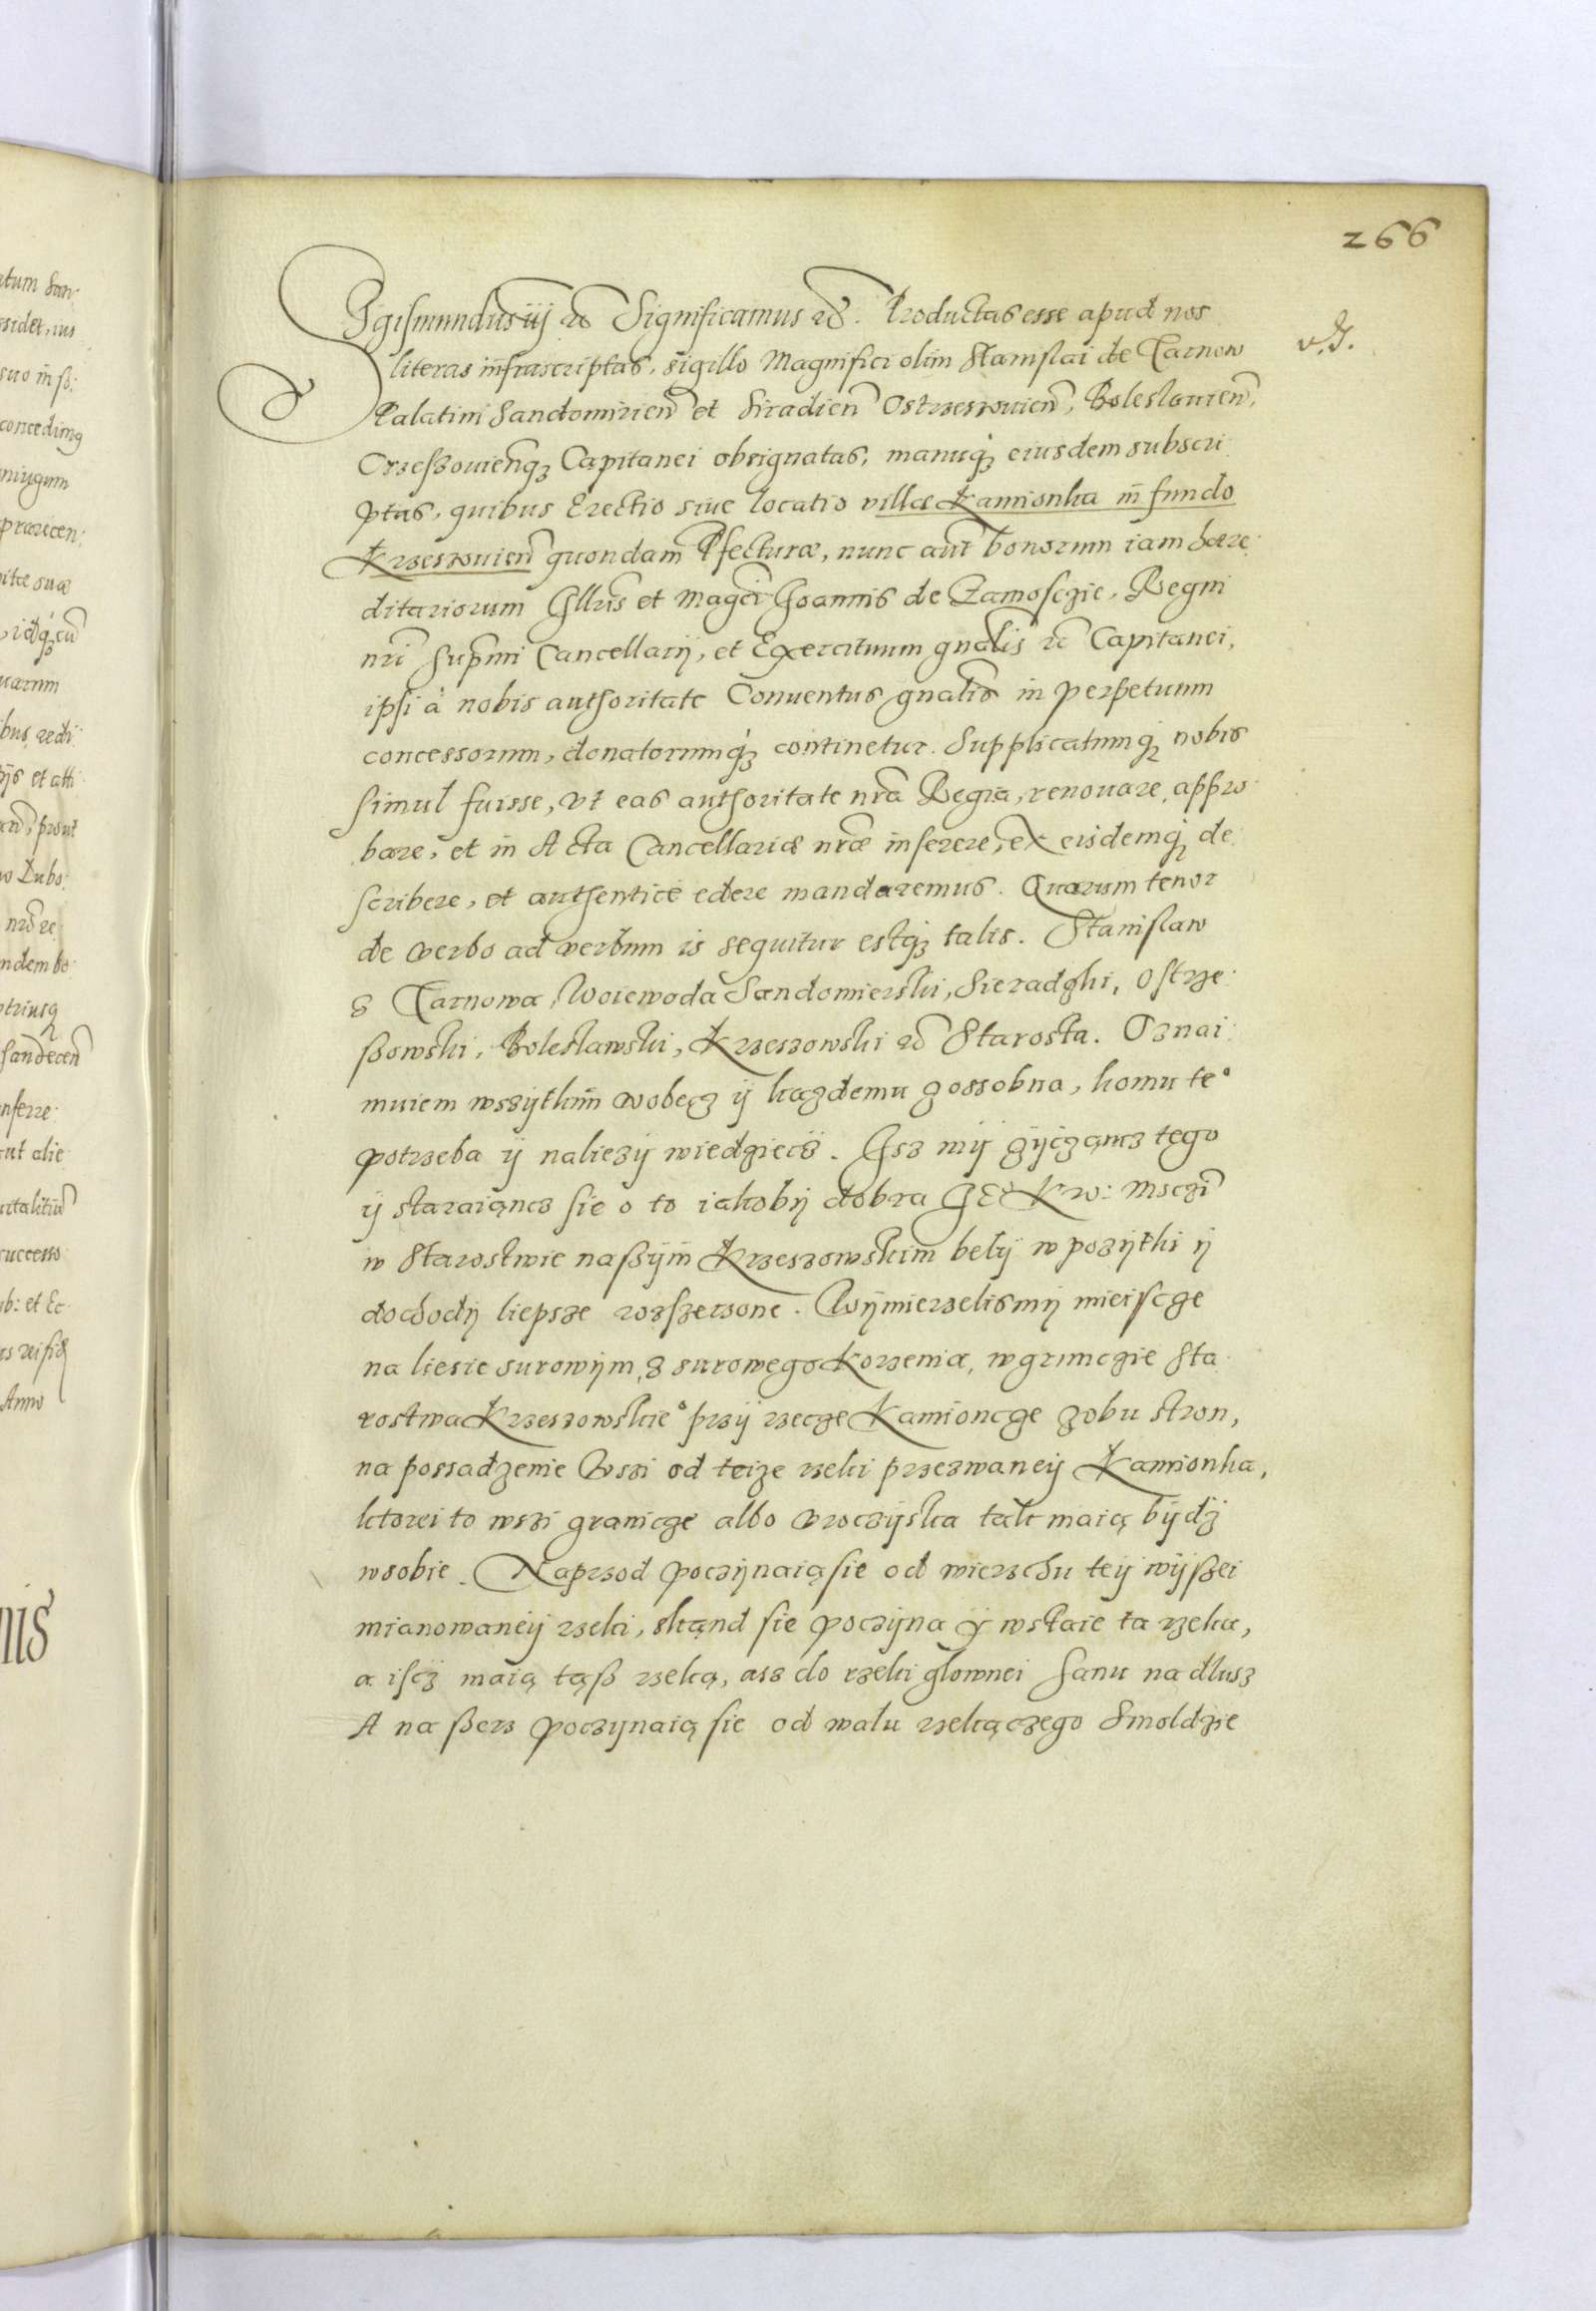 266
Sigismundus iij etc Significamus etc. Productas esse apud nos
v.s.
literas infrascriptas, sigillo Magnifici olim Stanislai de Tarnow
Palatini Sandomirień et Siradień Ostrzeszouień, Boleslauień,
Crzeßouienq3 Capitanei obsignatas, manuq3 eiusdem subscri
ptas, quibus Erectio siue locatio villae Kamionka in fundo
Krzeszouień quondam Pfecturae, nunc aut bonorum iam haere
ditariorum Illris et Magci Joannis de Zamosczie, Regni
nri supmi Cancellarij, et Exercituum gnalis etc Capitanei,
ipsi à nobis authoritate Conuentus gnalis in perpetuum
concessorum, donatorumq3 continetur. Supplicatumq3 nobis
simul fuisse, vt eas authoritate nra Regia, renouare, appro
bare, et in Acta Cancellariae nrae inserere, ex eisdemq3 de
scribere, et authenticè edere mandaremus. Quarum tenor
de verbo ad verbum is sequitur estq3 talis. Stanislaw
z Tarnowa, Woiewoda Sandomierski, Sieradzki, Ostrze
ßowski, Bolesławski, Krzeszowski etc Starosta. Oznai
muiem wszytkim wobęcz y kazdemu zossobna, komu te°
potrzeba y naliezy wiedziecz. Isz my zyczancz tego
y staraiąncz sie o to iakoby dobra JE Kro: Msczi
w Starostwie naßym Krzeszowskim bely w pozytki y
dochody liepsze rozszerzone. Wymierzelismy mieiscze
na liesie surowym, z surowego Korzenia, w grunczie Sta
rostwa Krzeszowskie° przy rzecze Kamioncze zobu stron,
na possadzenie Wszi od teize rzeki przezwaney Kamionka,
ktorei to wszi granicze albo vroczyska tak maią bydz
wsobie. Naprzod poczynaią sie od wierzchu tey wyßei
mianowaney rzeki, skąnd sie poczyna y wstaie ta rzeka,
a iscz maią tąß rzeką, asz do rzeki głownei Sanu na dlusz
A na ßerz poczynaią sie od wału rzekączego Smoldzie